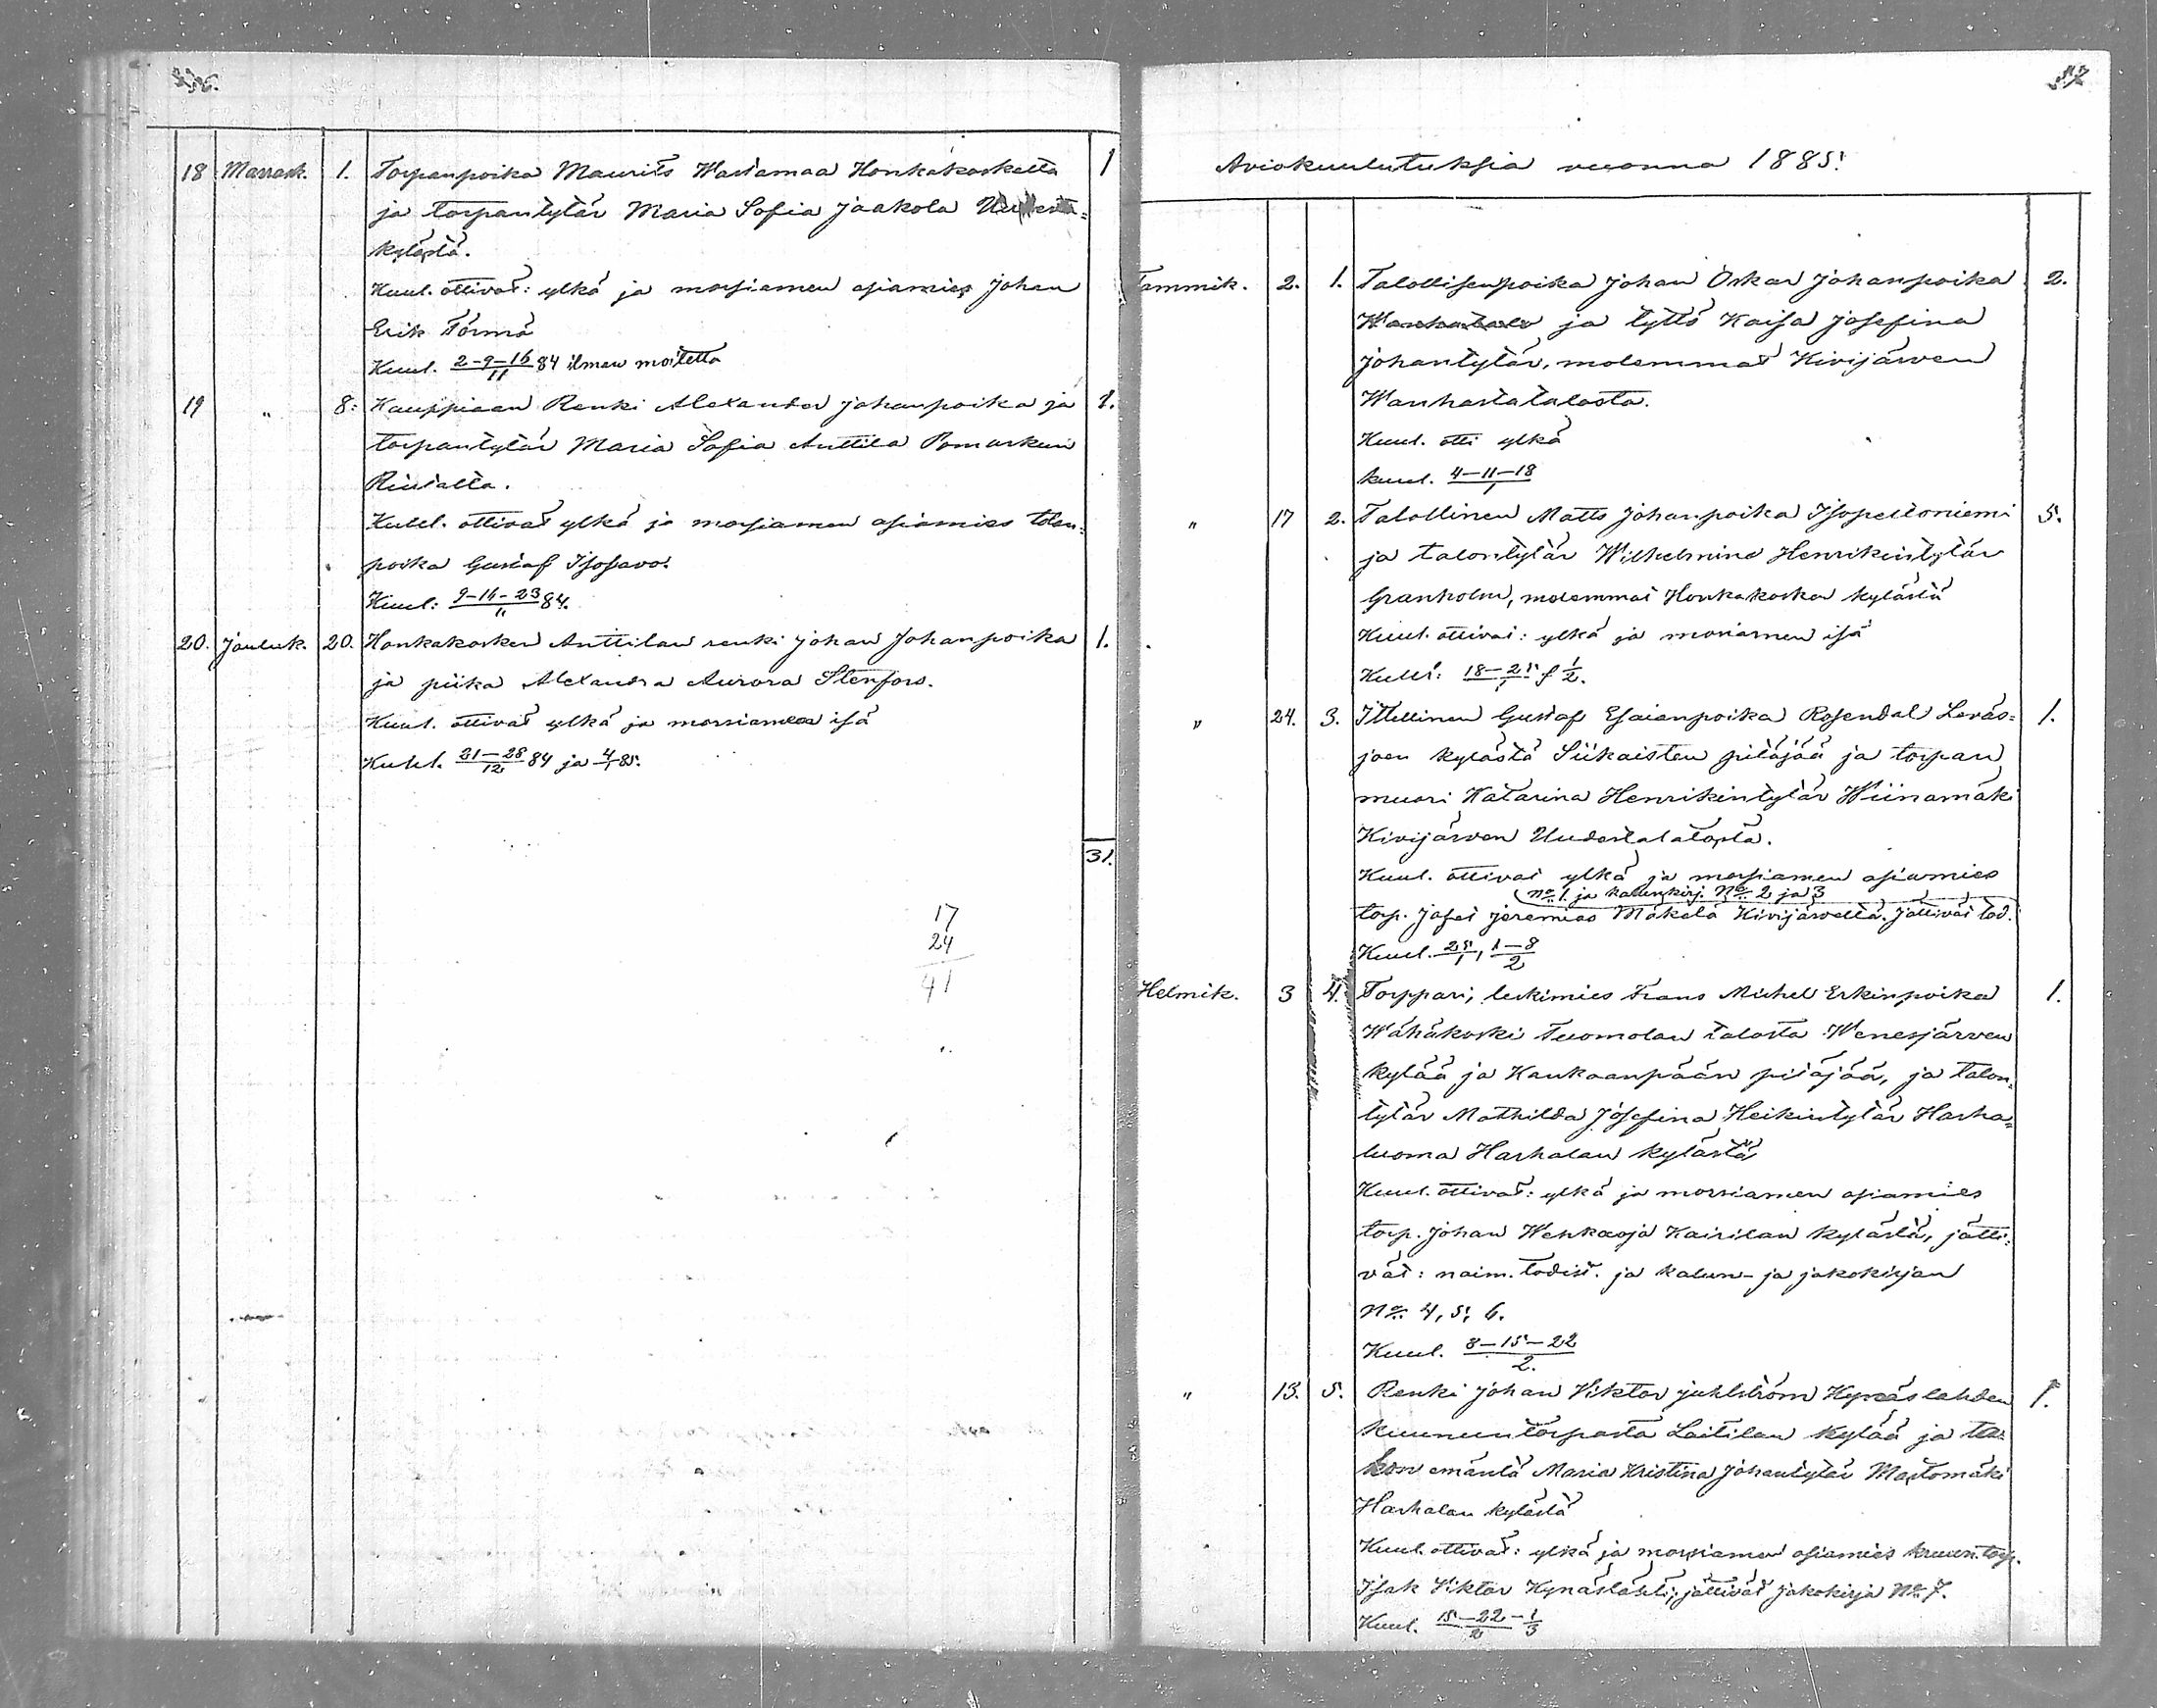 18 Marrask. 1. Torpanpoika Maurits Wastamaa Honkakoskelta 1
ja torpantytär Maria Sofia Jaakola
kylästä.
Kuul. ottivat: ylkä ja morsiamen asiamies Johan
Erik Törmä
Kuul. 2-9-16/11 84 ilman moitetta
19 " 8: Kauppiaan Renki Alexander Johanpoika ja 1.
torpantytär Maria Sofia Anttila Pomarkun
Kuul. ottivat ylkä ja morsiamen asiamies talon-
poika Gustaf Isosavo.
Kuul: 9-16-23/11 84.
20. Jouluk. 20. Honkakosken Anttilan renki Johan Johanpoika 1.
ja piika Alexandra Aurora Stenfors.
Kuul. ottivat ylkä ja morsiamen isä
Kuul. 21-28/12 84 ja 4/1 85.
31.
17
24
41
57
Aviokuulutuksia vuonna 1885.
Tammik. 2. 1. Talollisenpoika Johan Oskar Johanpoika 2.
Wanhatalo ja tyttö Kaisa Josefina
Johantytär, molemmat Kivijärven
Wanhastatalosta.
Kuul. otti ylkä
kuul. 4-11-18/1
" 17 2. Talollinen Matts Johanpoika Isopeltoniemi 5.
ja talontytär Wilhelmina Henrikintytär
Granholm, molemmat Honkakosken kylästä
Kuul. ottivat: ylkä ja morsiamen isä
Kuul: 18-25/1 1/2.
" 24. 3. Itsellinen Gustaf Esaianpoika Rosendal Leväs= 1.
joen kylästä Siikaisten pitäjää ja torpan
muori Katarina Henrikintytär Wiinamäki
Kivijärven Uudestatalosta.
Kuul. ottivat ylkä ja morsiamen asiamies
No 1 ja kalunkirj. No 2 ja 3
torp. Josef Jeremias Mäkelä Kivijärveltä. Jättivät tod.
Kuul. 25/1, 1-8/2
Helmik. 3 4. Torppari, leskimies Frans Mikel Erkinpoika 1.
Wähäkoski Tuomolan talosta Wenesjärven
kylää ja Kankaanpään pitäjää, ja talon-
tytär Mathilda Josefina Heikintytär Harha=
luoma Harhalan kylästä
Kuul. ottivat: ylkä ja morsiamen asiamies
torp. Johan Wehkaoja Kairilan kylästä, jätti-
vät: naim. todist. ja kalun- ja jakokirjan
No 4, 5, 6.
Kuul. 8-15-22/2.
" 13. 5. Renki Johan Viktor Juhlström Kynäslahden 1.
kruununtorpasta Laitilan kylää ja ta-
lon emäntä Maria Kristina Johantytär Mastomäki
Harhalan kylästä
Kuul. ottivat: ylkä ja morsiamen asiamies kruun. torp.
Isak Viktor Kynäslahti; jättivät jakokirja No 7.
Kuul. 15-22/2 - 1/3